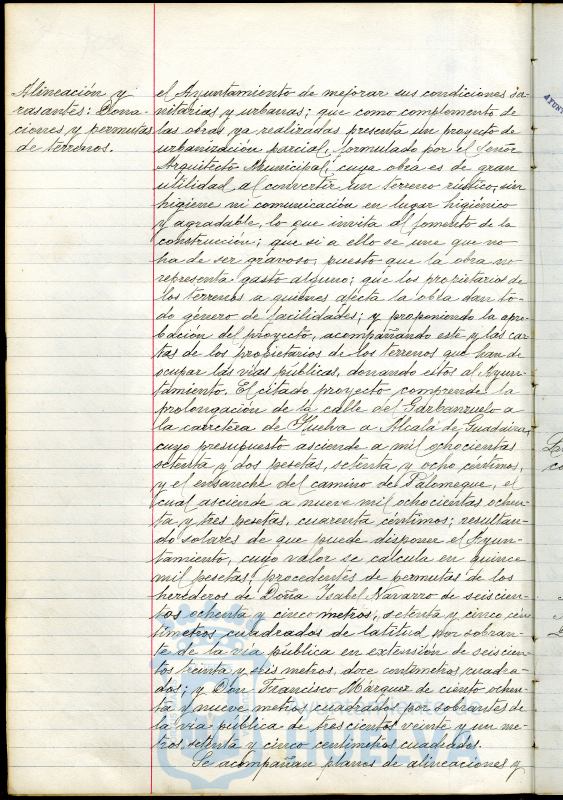 Alineación y
rasantes: Dona-
ciones y permutas
de terrenos.
el Ayuntamiento de mejorar sus condiciones sa-
nitarias y urbanas; que como complemento de
las obras ya realizadas presenta un proyecto de
urbanización parcial, formulado por el Señor
Arquitecto Municipal, cuya obra es de gran
utilidad al convertir un terreno rústico, sin
higiene ni comunicación en lugar higiénico
y agradable, lo que invita al fomento de la
construcción; que si a ello se une que no
ha de ser gravoso, puesto que la obra no
representa gasto alguno; que los propietarios de
los terrenos a quienes afecta la obra dan to-
do género de facilidades; y proponiendo la apro-
bación del proyecto, acompañando este y las car-
tas de los propietarios de los terrenos que han de
ocupar las vías públicas, donando estos al Ayun-
tamiento. El citado proyecto comprende la
prolongación de la calle del Garbanzuelo a
la carretera de Huelva a Alcalá de Guadaira,
cuyo presupuesto asciende a mil ochocientas
setenta y dos pesetas, setenta y ocho céntimos,
y el ensanche del camino de Palomeque, el
cual asciende a nueve mil ochocientas ochen-
ta y tres pesetas, cuarenta céntimos; resultan-
do solares de que puede disponer el Ayun-
tamiento, cuyo valor se calcula en quince
mil pesetas, procedentes de permutas de los
herederos de Doña Isabel Navarro de seiscien-
tos ochenta y cinco metros, setenta y cinco cén-
tímetros cuadrados de latitud por sobran-
te de la vía pública en extensión de seiscien-
tos treinta y seis metros, doce centímetros cuadra-
dos; y Don Francisco Márquez de ciento ochen-
ta y nueve metros cuadrados por sobrantes de
la vía pública de trescientos veinte y un me-
tros, setenta y cinco centímetros cuadrados.
Se acompañan planos de alineaciones y